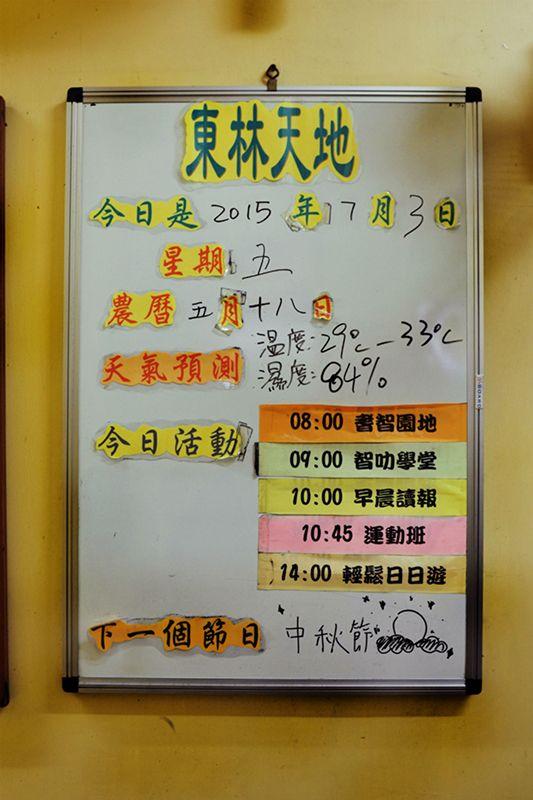 東林天地
今日是 2015 年 7 月 3 日
星期 五
農曆 五月十八日
天氣預測 温度:29°c - 33°c
濕度:84%
今日活動
08:00 書智園地
09:00 智叻學堂
10:00 早晨讀報
10:45 運動班
14:00 輕鬆日日遊
下一個節日 中秋節